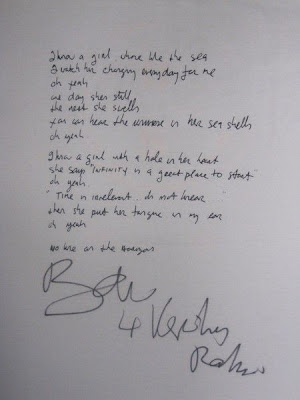 I know a girl whose like the sea
I watch her changing everyday for me
oh yeah
one day shes still
the next she swells
You can hear the universe in her sea shells
oh yeah
I know a girl with a hole in her heart
she says "INFINITY is a great place to start"
oh yeah
"Time is irrelevant.. not linear"
then she put her tongue in my ear
oh yeah
No line on the Horizon
4